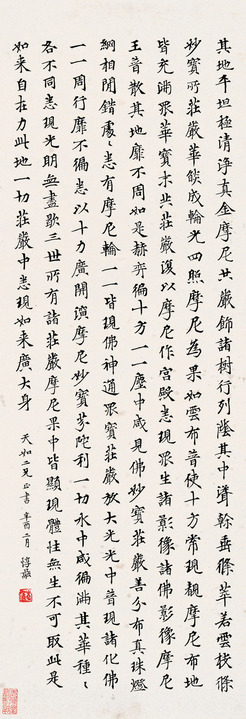 其地平坦極清淨真金摩尼共嚴飾諸樹行列蔭其中聳幹垂條萃若雲枝條
妙寶所莊嚴華燄成輪光四照摩尼為果如雲布普使十方常現覩摩尼布地
皆充滿眾華寶末共莊嚴復以摩尼作宮殿悉現眾生諸影像諸佛影像摩尼
王普散其地靡不周如是赫弈徧十方一一塵中咸見佛妙寶莊嚴善分布真珠燈
網相間錯處處悉有摩尼輪一一皆現佛神通眾寶莊嚴放大光光中普現諸化佛
一一周行靡不徧悉以十力廣開演摩尼妙寶芬陀利一切水中咸徧滿其華種種
各不同悉現光明無盡歇三世所有諸莊嚴摩尼果中皆顯現體性無生不可取此是
如來自在力此地一切莊嚴中悉現如來廣大身
天如二兄正書 辛酉二月